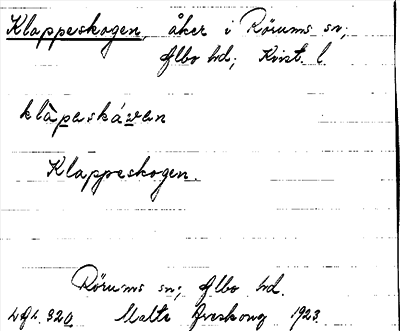 Klappeskogen, åker i Rörums sn;
Albo hd; Krist. l.
klàpeskáven
Klappeskogen.
Rörums sn; Albo hd.
320 Malte 1923